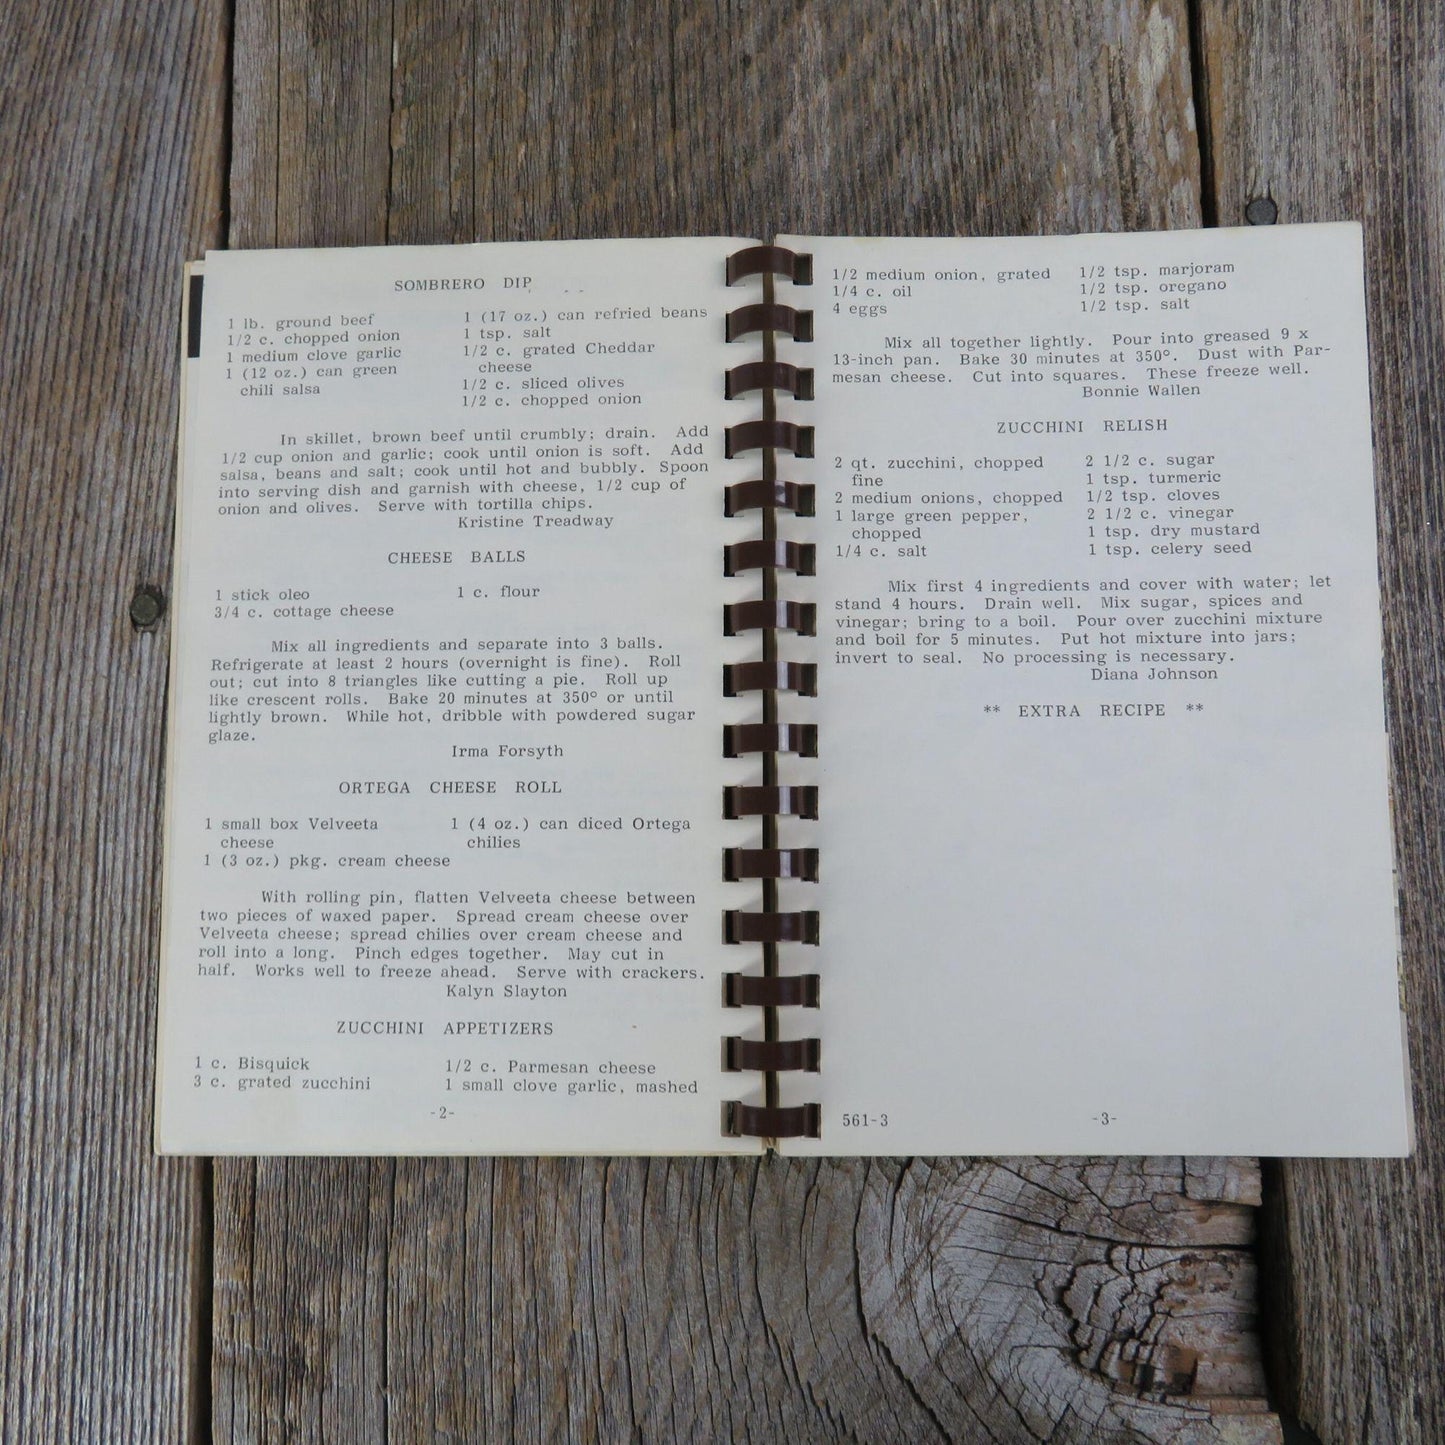 SOMBRERO DIP
1 lb. ground beef
1/2 c. chopped onion
1 medium clove garlic
1 (12 oz.) can green
chili salsa
1 (17 oz.) can refried beans
1 tsp. salt
1/2 c. grated Cheddar
cheese
1/2 c. sliced olives
1/2 c. chopped onion
In skillet, brown beef until crumbly; drain. Add
1/2 cup onion and garlic; cook until onion is soft. Add
salsa, beans and salt; cook until hot and bubbly. Spoon
into serving dish and garnish with cheese, 1/2 cup of
onion and olives. Serve with tortilla chips.
Kristine Treadway
CHEESE BALLS
1 stick oleo
3/4 c. cottage cheese
1 c. flour
Mix all ingredients and separate into 3 balls.
Refrigerate at least 2 hours (overnight is fine). Roll
out; cut into 8 triangles like cutting a pie. Roll up
like crescent rolls. Bake 20 minutes at 350° or until
lightly brown. While hot, dribble with powdered sugar
glaze.
Irma Forsyth
ORTEGA CHEESE ROLL
1 small box Velveeta
cheese
1 (3 oz.) pkg. cream cheese
1 (4 oz.) can diced Ortega
chilies
With rolling pin, flatten Velveeta cheese between
two pieces of waxed paper. Spread cream cheese over
Velveeta cheese; spread chilies over cream cheese and
roll into a long. Pinch edges together. May cut in
half. Works well to freeze ahead. Serve with crackers.
Kalyn Slayton
ZUCCHINI APPETIZERS
1 c. Bisquick
3 c. grated zucchini
1/2 c. Parmesan cheese
1 small clove garlic, mashed
-2-
1/2 medium onion, grated
1/4 c. oil
4 eggs
1/2 tsp. marjoram
1/2 tsp. oregano
1/2 tsp. salt
Mix all together lightly. Pour into greased 9 x
13-inch pan. Bake 30 minutes at 350°. Dust with Par-
mesan cheese. Cut into squares. These freeze well.
Bonnie Wallen
ZUCCHINI RELISH
2 qt. zucchini, chopped
fine
2 medium onions, chopped
1 large green pepper,
chopped
1/4 c. salt
2 1/2 c. sugar
1 tsp. turmeric
1/2 tsp. cloves
2 1/2 c. vinegar
1 tsp. dry mustard
1 tsp. celery seed
Mix first 4 ingredients and cover with water; let
stand 4 hours. Drain well. Mix sugar, spices and
vinegar; bring to a boil. Pour over zucchini mixture
and boil for 5 minutes. Put hot mixture into jars;
invert to seal. No processing is necessary.
Diana Johnson
** EXTRA RECIPE **
561-3
-3-